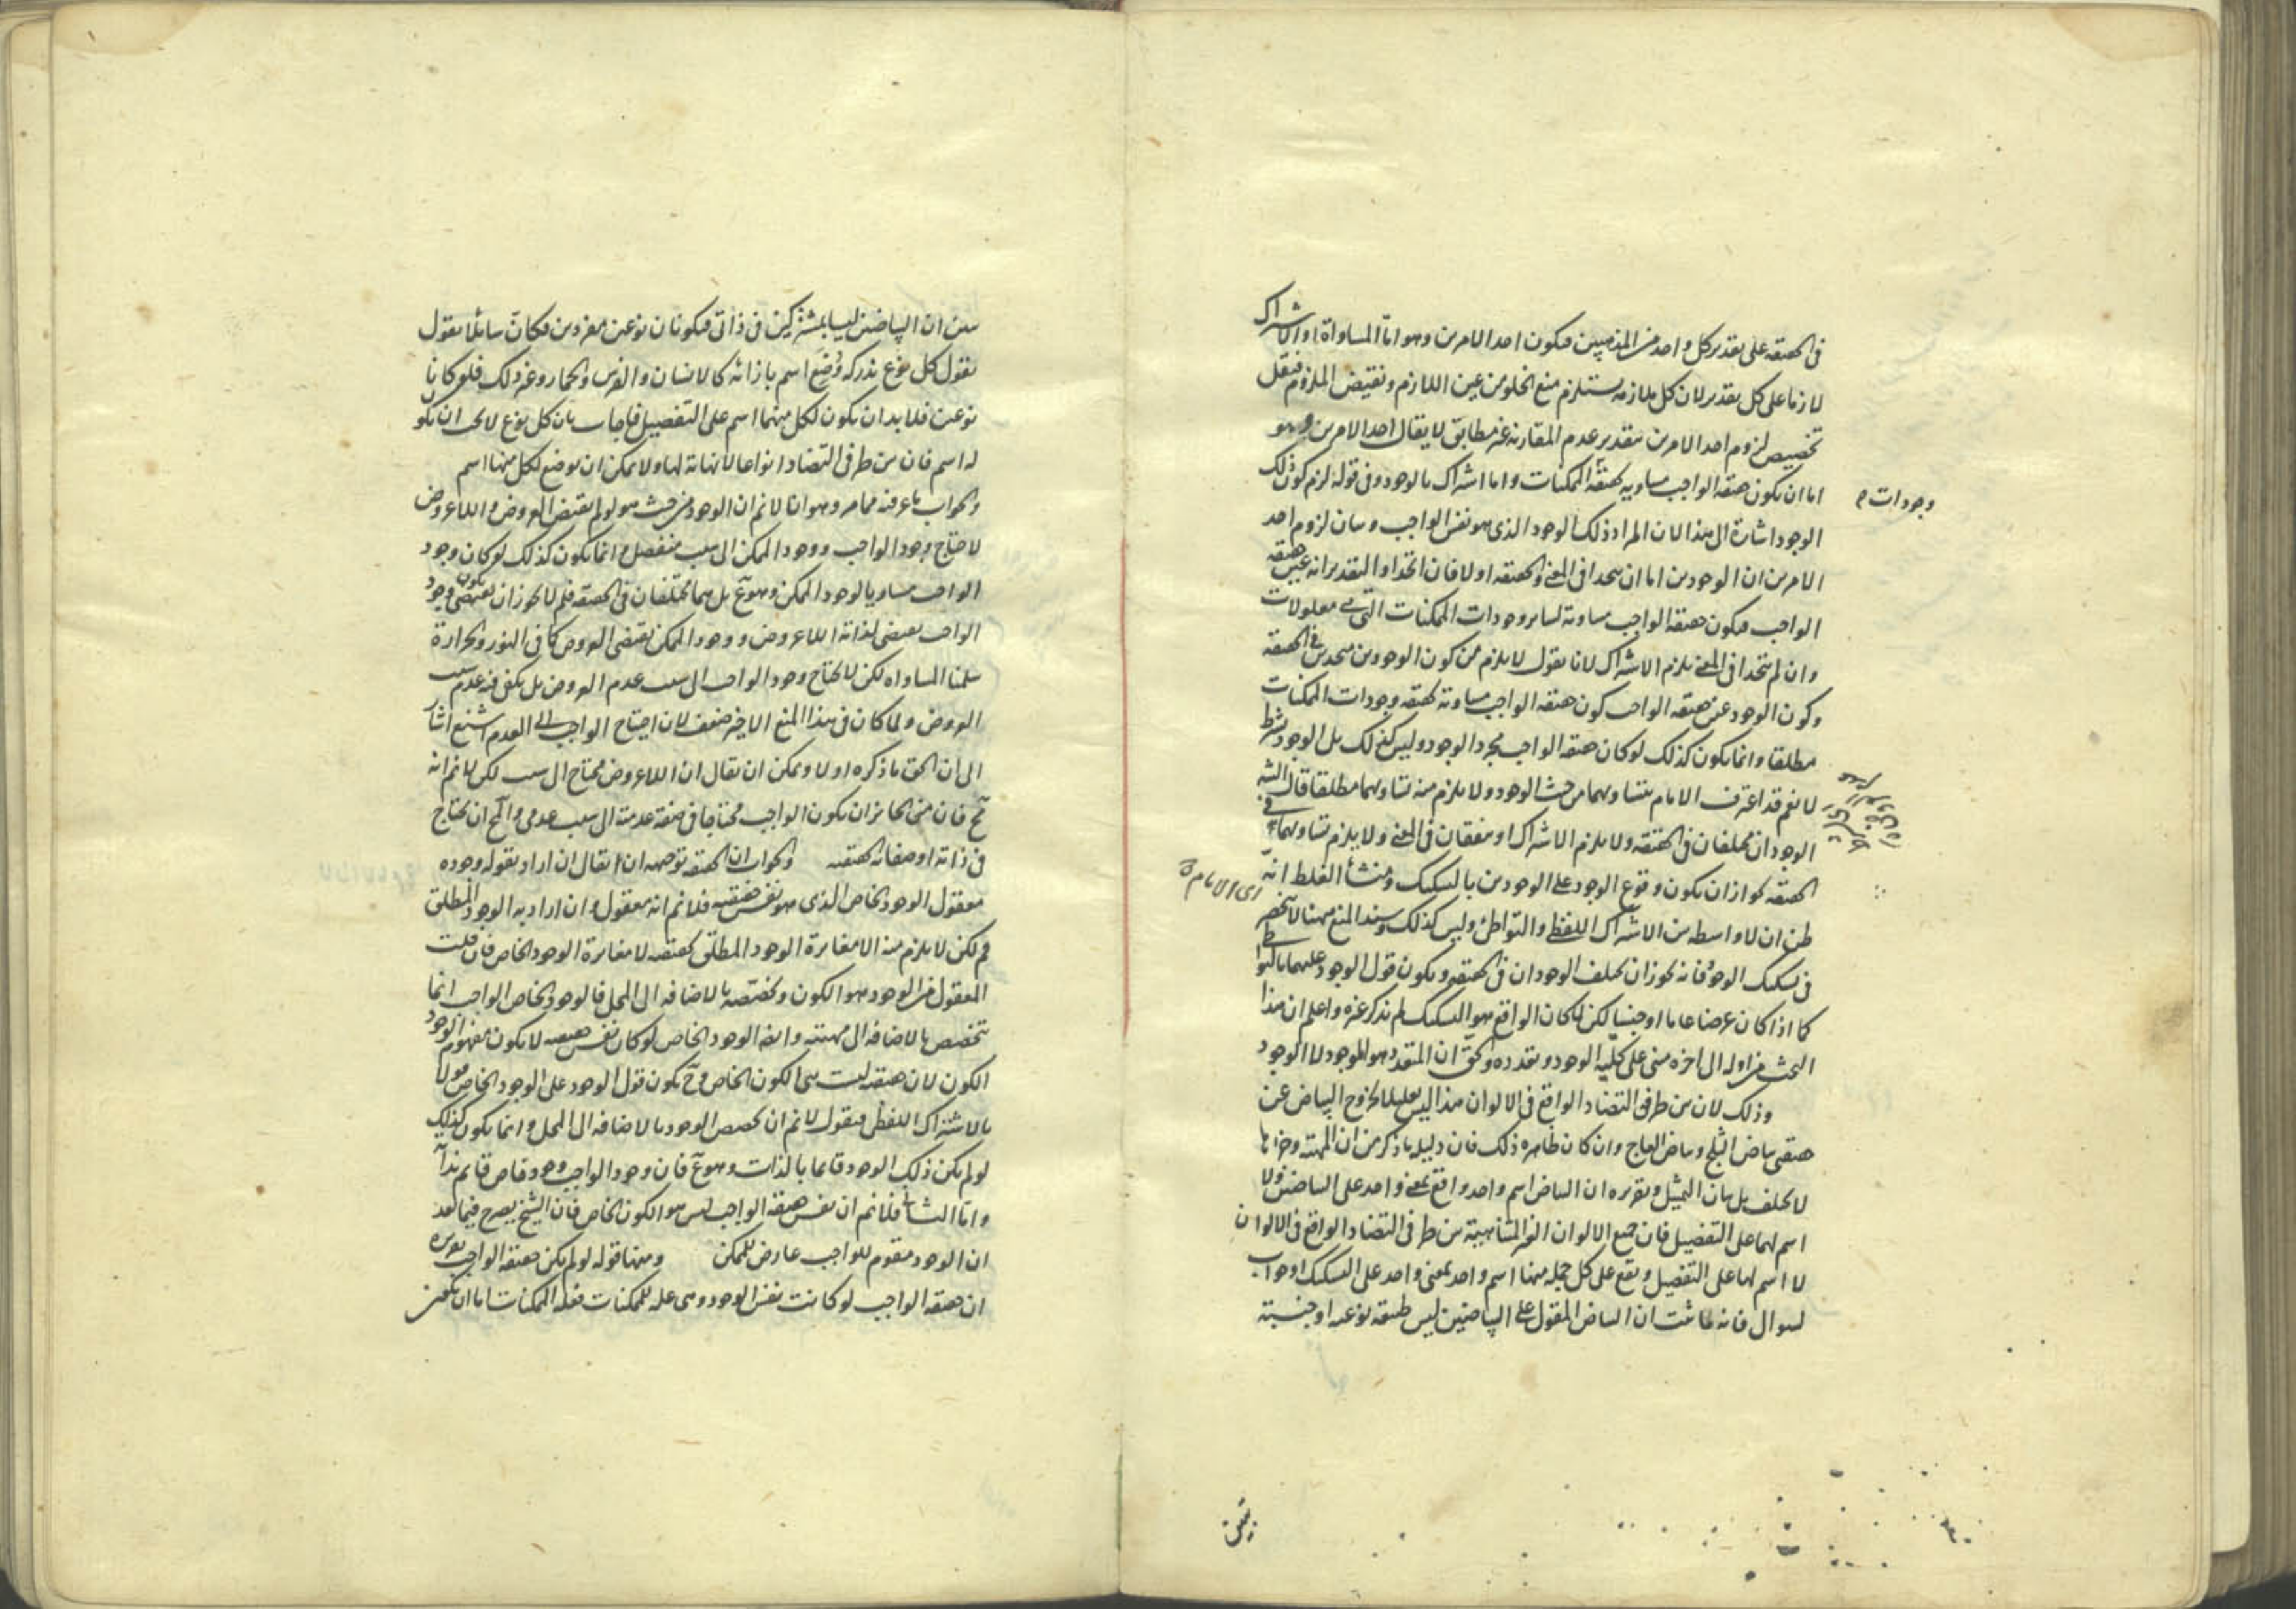 في الحقيقة على تقدير كل واحد من المذهبين فيكون احد الامرين وهو اما المساواة او الاشتراك
لازما على كل تقدير لان كل ملازمة يستلزم منع الخلو من عين اللازم ونقيض الملزوم فيقل
تخصيص لزوم احد الامرين بتقدير عدم المقارنة غير مطابق لا يقال احد الامرين وهو
اما ان يكون حقيقة الواجب مساوية لحقيقة الممكنات واما اشتراك بالوجود وفي قوله لزم كون ذلك
وجودات
الوجود اشارة الى هذا لان المراد ذلك الوجود الذي هو نفس الواجب وبيان لزوم احد
الامرين ان الوجودين اما ان يتحدا في المعنى والحقيقة اولا فان اتحدا والتقدير انه عين حقيقة
الواجب فيكون حقيقة الواجب مساوية لساير وجودات الممكنات التي هي معلولات
وان لم يتحدا في المعنى يلزم الاشتراك لانا نقول لا يلزم من كون الوجودين متحدين في الحقيقة
وكون الوجود عين حقيقة الواجب كون حقيقة الواجب مساوية لحقيقة وجودات الممكنات
مطلقا وانما يكون كذلك لو كان حقيقة الواجب مجرد الوجود وليس كذلك بل الوجود بشرط
لا نعم قد اعترف الامام بتساويهما من حيث الوجود ولا يلزم منه تساويهما مطلقا قال الشه
الوجودان مختلفان في الحقيقة ولا يلزم الاشتراك او متفقان في المعنى ولا يلزم تساويهما في
الحقيقة لجواز ان يكون وقوع الوجود على الوجودين بالتشكيك ومنشأ الغلط انه
اى الامام
ظن ان لا واسطه بين الاشتراك اللفظي والتواطئ وليس كذلك وسند المنع ههنا لا ينحصر
في تشكيك الوجود فانه يجوز ان يختلف الوجودان في الحقيقة ويكون قول الوجود عليهما بالتواطي
كما اذا كان عرضا عاما او جنسا لكن لما كان الواقع هو التشكيك لم يذكر غيره واعلم ان هذا
البحث من اوله الى اخره مبني على كلية الوجود وتعدده والحق ان المتعدد هو الموجود لا الوجود
وذلك لان بين طرفي التضاد الواقع في الالوان هذا ليس تعليلا لخروج البياض عن
حقيقتي بياض الثلج وبياض العاج وان كان ظاهره ذلك فان دليله ما ذكر من ان المهية وجزاها
لا يختلف بل بيان التمثيل وتقريره ان البياض اسم واحد واقع بمعنى واحد على البياضين ولا
اسم لهما على التفصيل فان جميع الالوان الغير المتناهية بين طرفي التضاد الواقع في الالوان
لا اسم لها على التفصيل ويقع على كل جملة منها اسم واحد بمعنى واحد على التشكيك او جواب
لسوال فانه لما ثبت ان البياض المقول على البياضين ليس طبيعة نوعية او جنسية
تبين ان البياضين ليسا بمشتركين في ذاتي فيكونان نوعين مفردين فكان سائلا يقول
يقول كل نوع ندركه وُضِعَ اسم بازائه كالانسان والفرس والحمار وغير ذلك فلو كانا
نوعين فلا بد ان يكون لكل منهما اسم على التفصيل فاجاب بان كل نوع لا يجب ان يكون
له اسم فان بين طرفي التضاد انواعا لا نهاية لها ولا يمكن ان يوضع لكل منها اسم
والجواب ما عرفته مما مر وهو انا لا نم ان الوجود من حيث هو لو لم يقتض العروض واللاعروض
لاحتاج وجود الواجب ووجود الممكن الى سبب منفصل وانما يكون كذلك لو كان وجود
الواجب مساويا لوجود الممكن وهو مع بل هما مختلفان في الحقيقة فلم لا يجوز ان يكون وجود
الواجب يقتضي لذاته اللاعروض ووجود الممكن يقتضي العروض كما في النور والحرارة
سلمنا المساواة لكن لا يحتاج وجود الواجب الى سبب عدم العروض بل يكفي فيه عدم سبب
العروض ولما كان في هذا المنع الاخير ضعف لان احتياج الواجب الى العدم اشنع اشار
الى ان الحق ما ذكره اولا ويمكن ان يقال ان اللاعروض محتاج الى سبب لكن لا نم انه
مح فان من الجائز ان يكون الواجب محتاجا في صفة عدمية الى سبب عدمي والمح ان يحتاج
في ذاته او صفاته الحقيقية والجواب ان الحقيقة توجيهه ان يقال ان اراد بقوله وجوده
معقول الوجود الخاص الذي هو نفس حقيقته فلا نم انه معقول وان اراد به الوجود المطلق
فم لكن لا يلزم منه الا مغايرة الوجود المطلق لحقيقته لا مغايرة الوجود الخاص فان قلت
المعقول من الوجود هو الكون وتخصصه بالاضافة الى المحل فالوجود الخاص الواجب انما
يتخصص بالاضافة الى مهيته وايضه الوجود الخاص لو كان نفس حقيقته لا يكون مفهوم الوجود
الكون لان حقيقته ليست هي الكون الخاص وح يكون قول الوجود على الوجود الخاص قولا
بالاشتراك اللفظي فنقول لا نم ان تخصص الوجود بالاضافة الى المحل وانما يكون كذلك
لو لم يكن ذلك الوجود قائما بالذات وهو مع فان وجود الواجب وجود خاص قايم بذاته
واما الثاني فلا نم ان نفس حقيقة الواجب ليس هو الكون الخاص فان الشيخ يصرح فيما بعد
ان الوجود مقوم للواجب عارض للممكن ومنها قوله لو لم يكن حقيقة الواجب تقريره
ان حقيقة الواجب لو كانت نفس الوجود وهي علة للممكنات فعلة الممكنات اما ان يكون